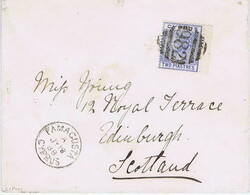 CYPRUS
982
TWO PIASTRES
Miss Young
12 Royal Terrace
Edinburgh
Scotland
FAMAGUSTA
CYPRUS